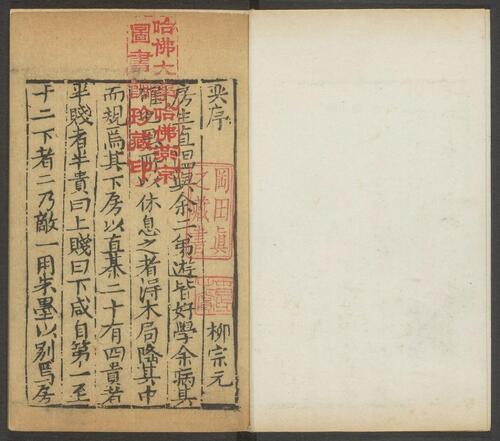 哈佛大學哈佛燕京
圖書館珍藏印
奕序
柳宗元
房生直温與余二弟遊皆好學余病其
確也思所以休息之者得木局隆其中
而規焉其下房以直棊二十有四貴者
半賤者半貴曰上賤曰下咸自第一至
十二下者二乃敵一用朱墨以別焉房
岡田眞
之藏書